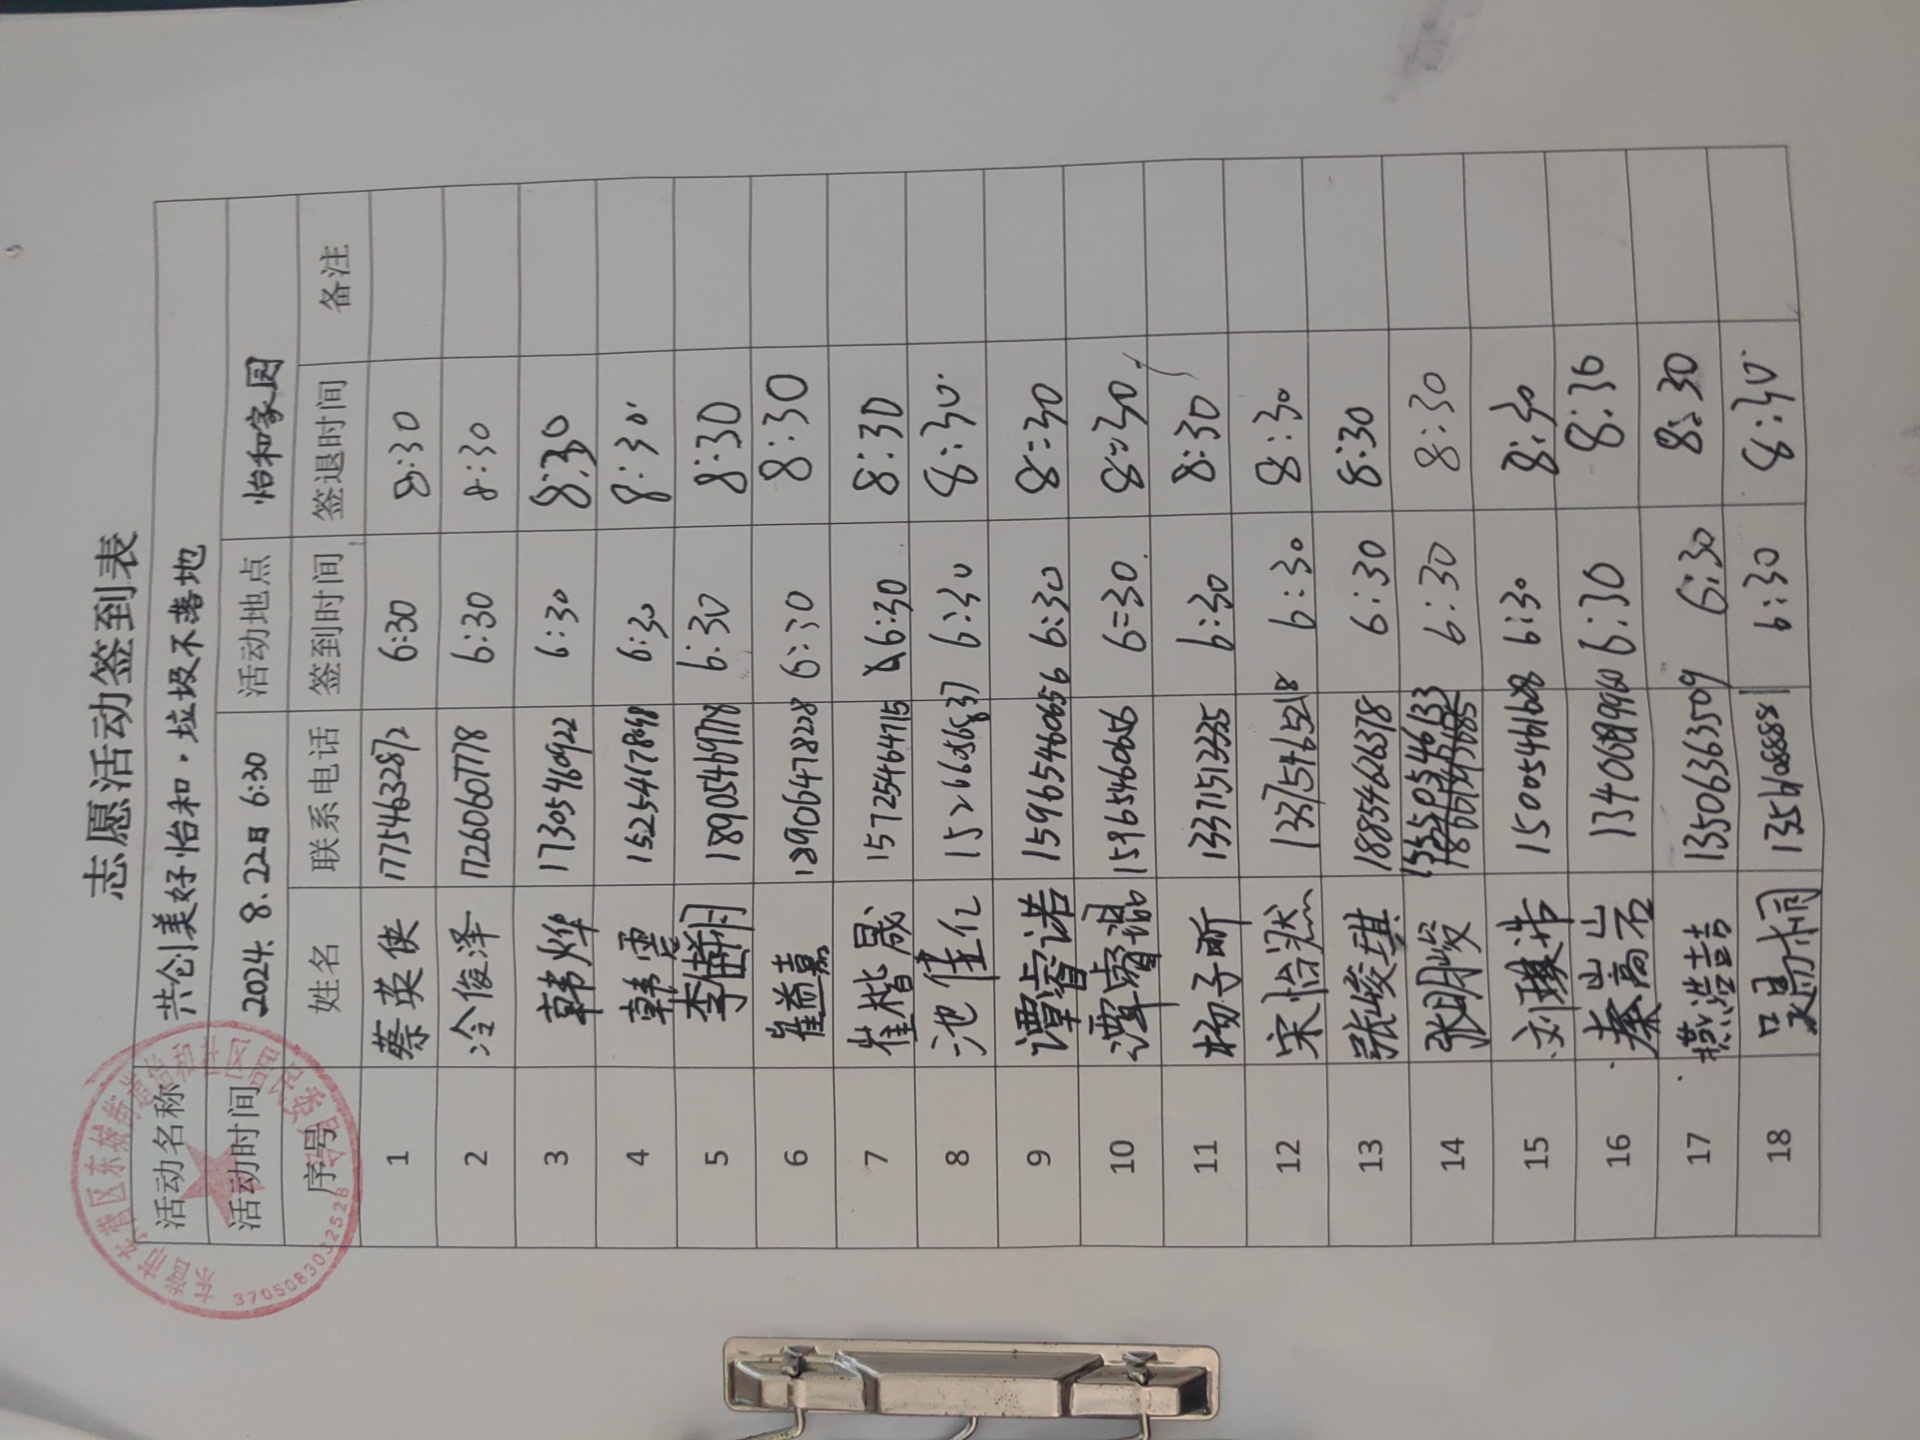 志愿活动签到表
活动名称 共创美好怡和·垃圾不落地
活动时间 2024.8.22日 6:30 活动地点 怡和家园
序号 姓名 联系电话 签到时间 签退时间 备注
1 蔡英侠 17754632872 6:30 8:30
2 冷俊泽 17260607778 6:30 8:30
3 韩烨 17305460922 6:30 8:30
4 韩霑 15254178998 6:30 8:30
5 18905469778 6:30 8:30
6 崔益嘉 18906478228 6:30 8:30
7 崔楷晟 15725464715 6:30 8:30
8 池佳亿 15266056837 6:30 8:30
9 谭睿诺 15965460656 6:30 8:30
10 谭睿 15965460656 6:30 8:30
11 杨子昕 13371513335 6:30 8:30
12 宋怡然 13371546528 6:30 8:30
13 张峻琪 18854606378 6:30 8:30
14 张明峻 6:30 8:30
15 刘 15005461608 6:30 8:30
16 秦 13406899960 6:30 8:30
17 燕浩吉 13506363509 6:30 8:30
18 6:30 8:30
东营市东营区东城街道怡和社区居民委员会
3705083032528